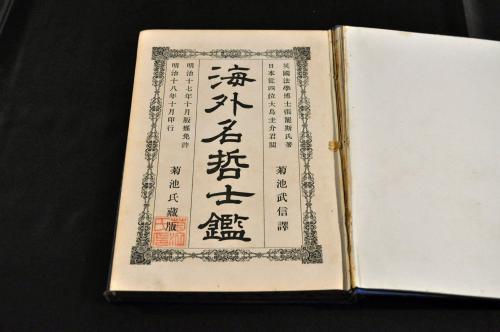 英國法學博士張寵斯氏著
日本從四位大鳥圭介君閲
菊池武信譯
海外名哲士鑑
明治十七年十月版權免許
明治十八年十月印行
菊池氏藏版